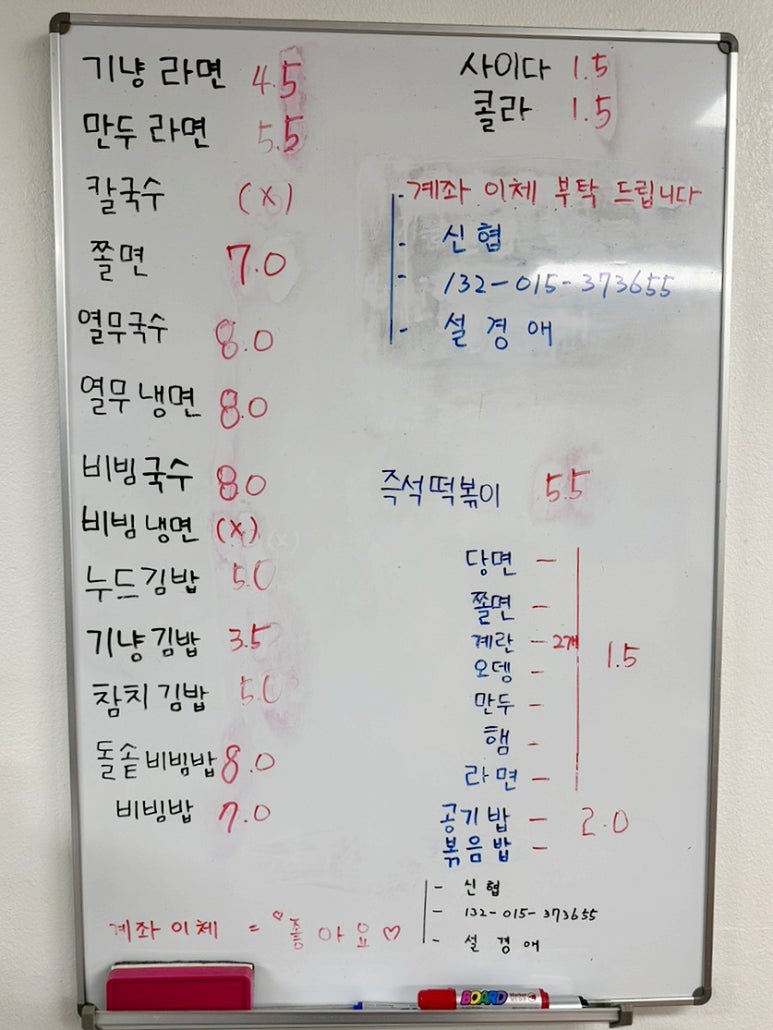 기냥 라면 4.5
만두 라면 5.5
칼국수 (x)
쫄면 7.0
열무국수 8.0
열무 냉면 8.0
비빔국수 8.0
비빔 냉면 (x)
누드김밥 5.0
기냥 김밥 3.5
참치 김밥 5.0
돌솥 비빔밥 8.0
비빔밥 7.0
사이다 1.5
콜라 1.5
- 계좌 이체 부탁 드립니다
- 신협
- 132-015-373655
- 설 경 애
즉석 떡볶이 5.5
당면 -
쫄면 -
계란 - 2개
오뎅 -
만두 -
햄 -
라면 -
1.5
공기밥 - 2.0
볶음밥 -
- 신협
- 132-015-373655
- 설 경 애
계좌 이체 = ♡좋 아 요♡
BOARD Marker